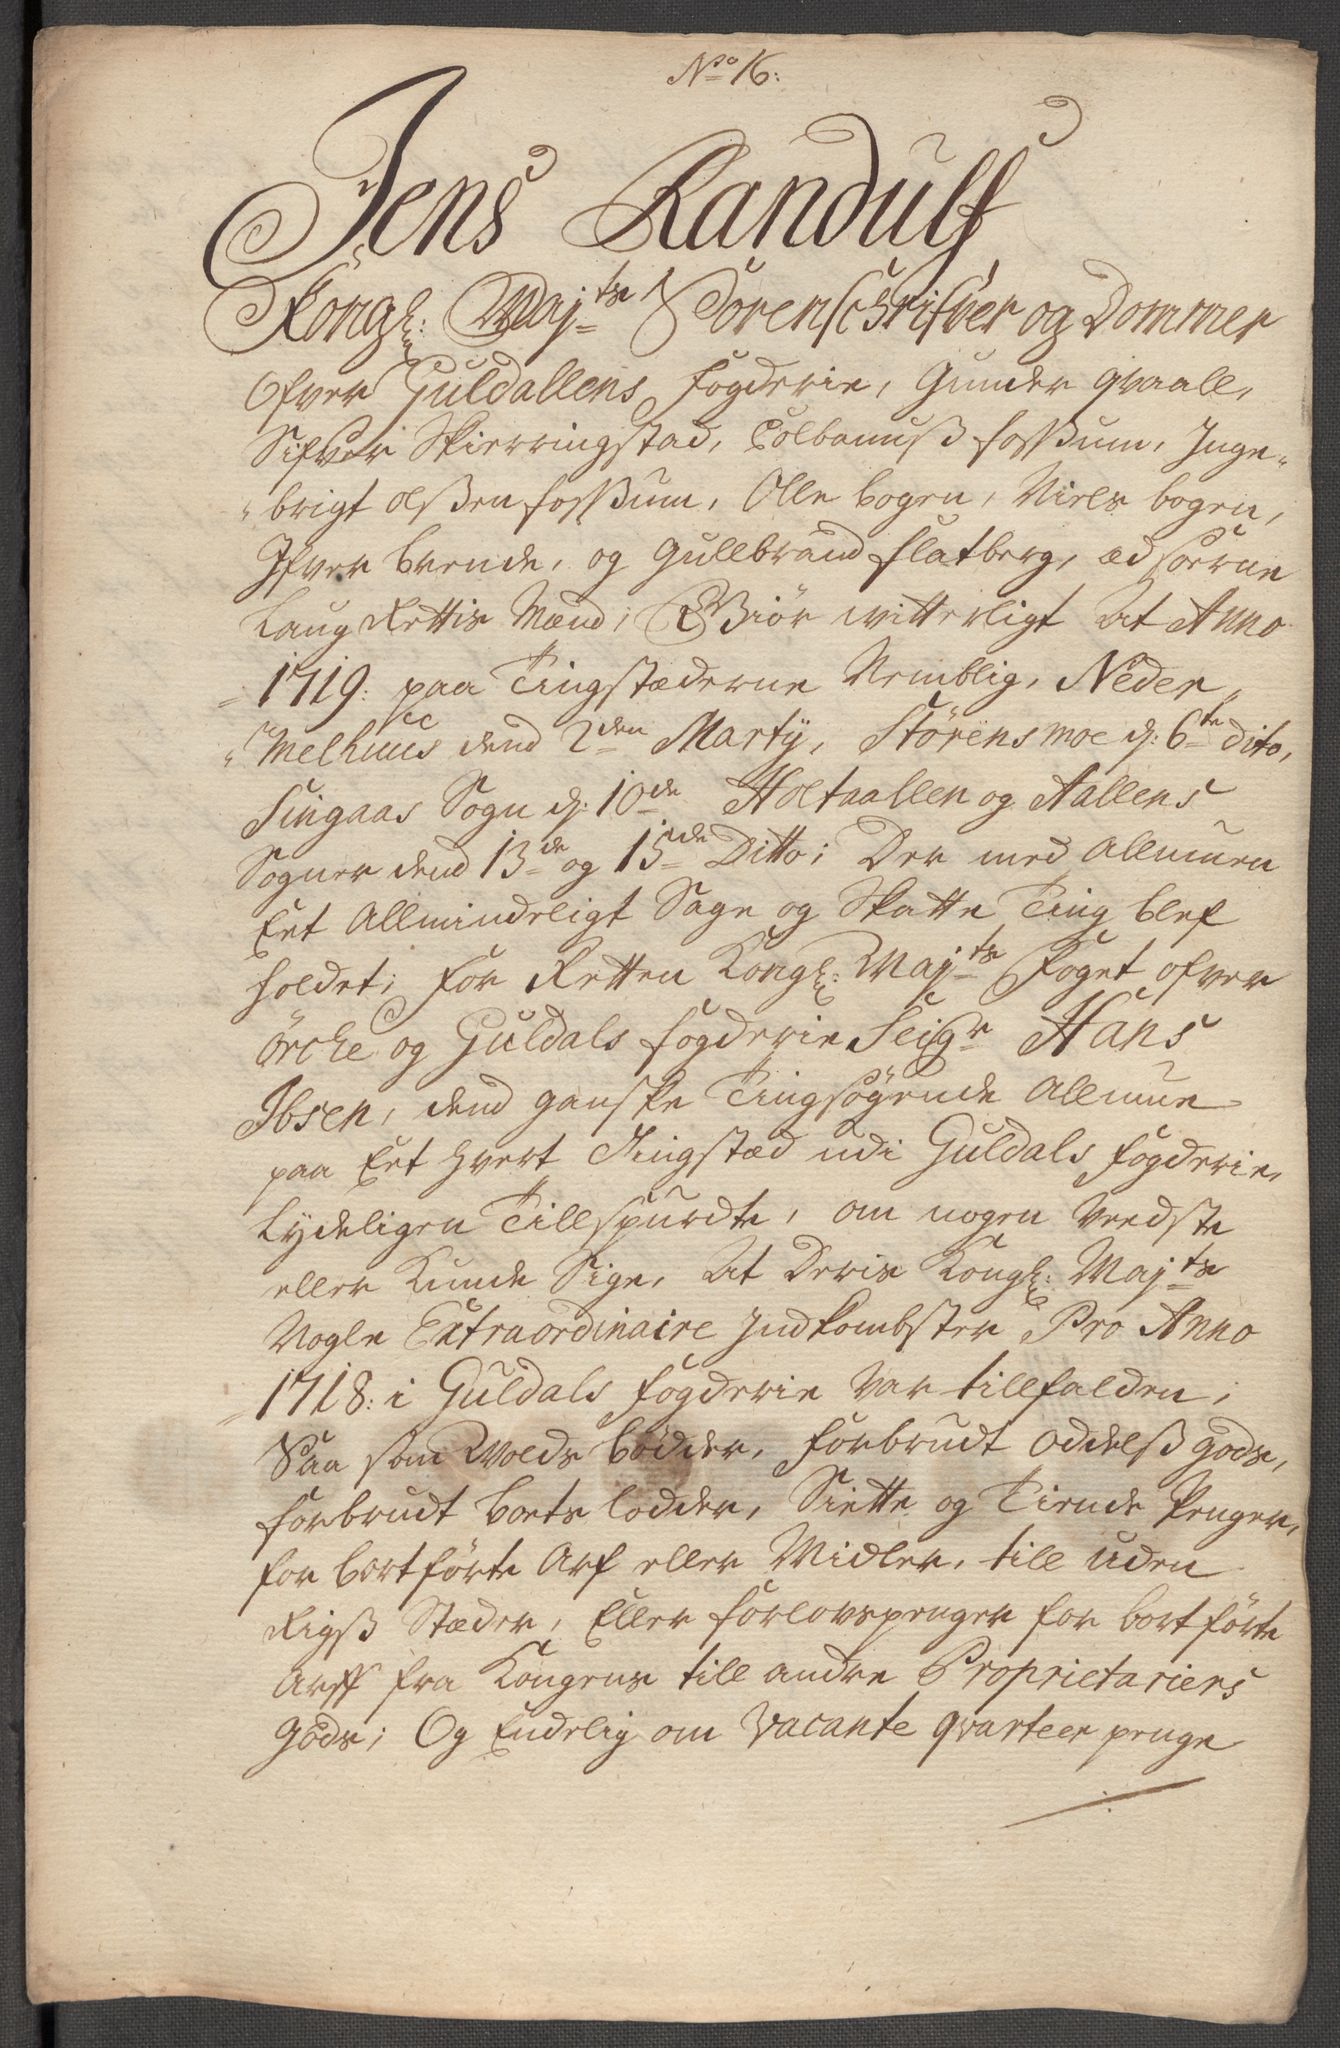 No 16:
Jens Randulf
Kongl: Majts Sorenschrifver og Dommer
Ofver Guldallens fogderie, Gunder qvaall,
Sifver Skierringstad, Colbanuß foßßum, Inge„
„brigt olßen foßßum, Olle bogen, Niels bogen,
Ifver brende, og Gullbrand flatberg, æd soerne
Laug Rettis Mænd; Giör witterligt At Anno
1719: paa Tingstæderne Nemblig, Neder„
„Melhuus dend 2den Marty, Störens moe d: 6te dito,
Singaas Sogn d: 10de Holtaallen og Aallens
Sogner dend 13de og 15de Ditto; Der med Allmuen
Eet Allmindeligt Sage og Skatte Ting blef
holdet; for Retten Kongl: Majts Foget ofver
örche og Guldals fogderie Seigr Hans
Ibsen, dend ganske Tingsögende Allmue
paa Eet hvert Tingstæd udi Guldals fogderie,
Lydeligen Tillspurdte, om nogen Veedste
eller Kunde Sige, At Deris Kongl: Majts
Nogle Extraordinaire Indkombster Pro Anno
1718: i Guldals fogderie Var tillfalden;
Saa som Wolds bödder, forbrudt Oddelß gods,
forbrudt boets lodder, Siette og Tiende Penger,
for bortförte Arf eller Midler, till uden
Rigß Stæder, Eller forlovspenger for bortförte
Arff fra Kongens till andre Proprietariers
Gods; Og Endelig om Vacante qvarteer penge